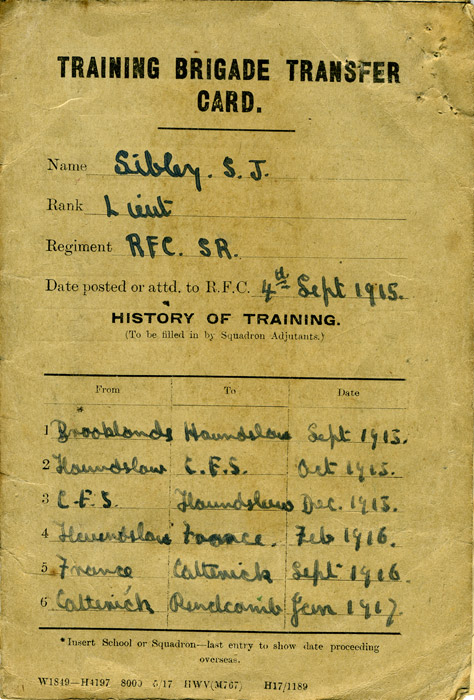 TRAINING BRIGADE TRANSFER
CARD.
Name Sibley. S. J.
Rank Lieut
Regiment RFC. SR.
Date posted or attd. to R.F.C. 4th Sept 1915.
HISTORY OF TRAINING.
(To be filled in by Squadron Adjutants.)
From To Date
*
1 Brooklands Haundslow Sept 1915.
2 Haundslow C.F.S. Oct 1915.
3 C.F.S. Haundslow Dec. 1915.
4 Haundslow France. Feb 1916.
5 France Catterick Sept 1916.
6 Catterick Rendcomb Jan 1917.
*Insert School or Squadron—last entry to show date proceeding
overseas.
W1849—H4197 8000 5/17 HWV(M767) H17/1189